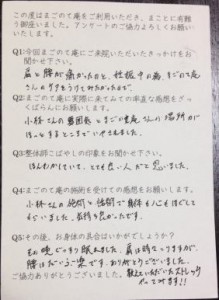 この度はまごのて庵をご利用いただき、まことに有難
う御座いました。アンケートのご協力よろしくお願い
いたします。
Q1:今回まごのて庵にご来院いただいたきっかけをお
聞かせ下さい。
肩と腰が痛かったのと、性脈中の為、まごのて庵
さんの
Q2:まごのて庵に実際に来てみての率直な感想をざっ
くばらんにお願いします。
小林さんの雰囲気とまごのて庵さんの場所が
ほっとするところでいやされました。
Q3:整体師こばやしの印象をお聞かせ下さい。
ほんわかしていて、とても良い人だと思いました。
Q4:まごのて庵の施術を受けての感想をお願いします。
小林さんの施術と話術で身体も心もほぐして
もらいました。気持ち良かったです。
Q5:その後、お身体の具合はいかがでしょうか?
もお晩ぐっすり眠れました。肩は時々こりますが、
腰はだいぶ楽です。ありがとうございました。
ご協力ありがとうございました。教えていただいたストレッチ
がんばります!!